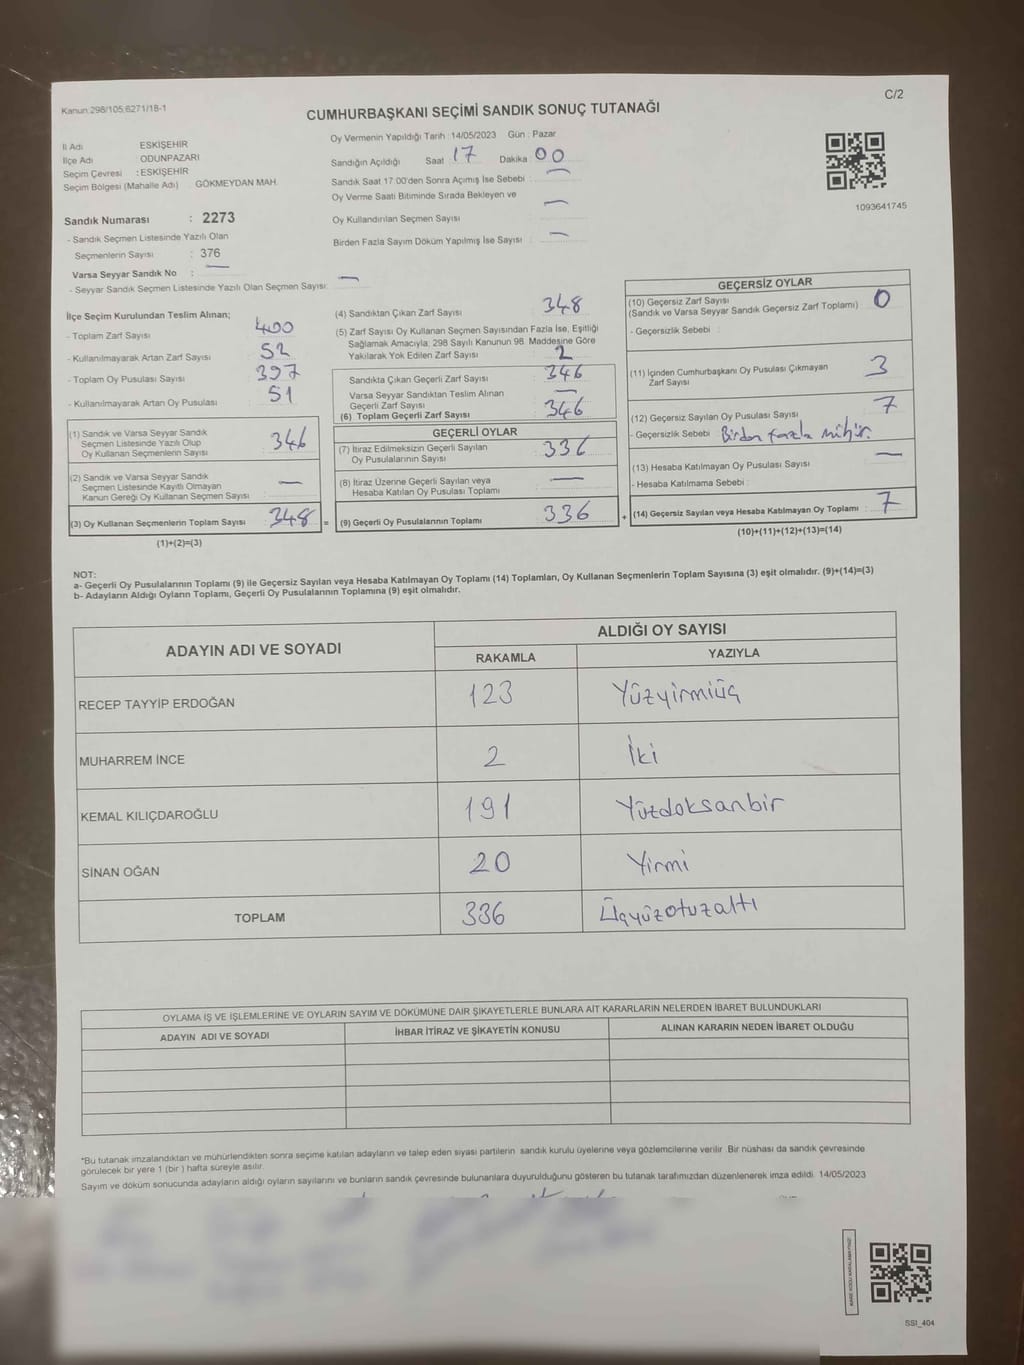 Kanun:298/105;6271/18-1
C/2
CUMHURBAŞKANI SEÇİMİ SANDIK SONUÇ TUTANAĞI
İl Adı ESKİŞEHİR
İlçe Adı ODUNPAZARI
Seçim Çevresi : ESKİŞEHİR
Seçim Bölgesi (Mahalle Adı) GÖKMEYDAN MAH.
Sandık Numarası : 2273
- Sandık Seçmen Listesinde Yazılı Olan
Seçmenlerin Sayısı : 376
Varsa Seyyar Sandık No : —
- Seyyar Sandık Seçmen Listesinde Yazılı Olan Seçmen Sayısı: —
Oy Vermenin Yapıldığı Tarih : 14/05/2023 Gün : Pazar
Sandığın Açıldığı Saat 17 Dakika 00
Sandık Saat 17:00'den Sonra Açımış İse Sebebi : —
Oy Verme Saati Bitiminde Sırada Bekleyen ve
Oy Kullandırılan Seçmen Sayısı —
Birden Fazla Sayım Döküm Yapılmış İse Sayısı : —
1093641745
İlçe Seçim Kurulundan Teslim Alınan;
- Toplam Zarf Sayısı 400
- Kullanılmayarak Artan Zarf Sayısı 52
- Toplam Oy Pusulası Sayısı 397
- Kullanılmayarak Artan Oy Pusulası 51
(1) Sandık ve Varsa Seyyar Sandık
Seçmen Listesinde Yazılı Olup
Oy Kullanan Seçmenlerin Sayısı 346
(2) Sandık ve Varsa Seyyar Sandık
Seçmen Listesinde Kayıtlı Olmayan
Kanun Gereği Oy Kullanan Seçmen Sayısı —
(3) Oy Kullanan Seçmenlerin Toplam Sayısı : 348 =
(1)+(2)=(3)
(4) Sandıktan Çıkan Zarf Sayısı 348
(5) Zarf Sayısı Oy Kullanan Seçmen Sayısından Fazla İse, Eşitliği
Sağlamak Amacıyla; 298 Sayılı Kanunun 98. Maddesine Göre
Yakılarak Yok Edilen Zarf Sayısı 2
Sandıkta Çıkan Geçerli Zarf Sayısı 346
Varsa Seyyar Sandıktan Teslim Alınan
Geçerli Zarf Sayısı —
(6) Toplam Geçerli Zarf Sayısı 346
GEÇERLİ OYLAR
(7) İtiraz Edilmeksizin Geçerli Sayılan
Oy Pusulalarının Sayısı 336
(8) İtiraz Üzerine Geçerli Sayılan veya
Hesaba Katılan Oy Pusulası Toplamı —
(9) Geçerli Oy Pusulalarının Toplamı 336 +
GEÇERSİZ OYLAR
(10) Geçersiz Zarf Sayısı
(Sandık ve Varsa Seyyar Sandık Geçersiz Zarf Toplamı) : 0
- Geçersizlik Sebebi :
(11) İçinden Cumhurbaşkanı Oy Pusulası Çıkmayan
Zarf Sayısı 3
(12) Geçersiz Sayılan Oy Pusulası Sayısı 7
- Geçersizlik Sebebi Birden fazla mühür.
(13) Hesaba Katılmayan Oy Pusulası Sayısı —
- Hesaba Katılmama Sebebi :
(14) Geçersiz Sayılan veya Hesaba Katılmayan Oy Toplamı : 7
(10)+(11)+(12)+(13)=(14)
NOT:
a- Geçerli Oy Pusulalarının Toplamı (9) ile Geçersiz Sayılan veya Hesaba Katılmayan Oy Toplamı (14) Toplamları, Oy Kullanan Seçmenlerin Toplam Sayısına (3) eşit olmalıdır. (9)+(14)=(3)
b- Adayların Aldığı Oyların Toplamı, Geçerli Oy Pusulalarının Toplamına (9) eşit olmalıdır.
ADAYIN ADI VE SOYADI ALDIĞI OY SAYISI
RAKAMLA YAZIYLA
RECEP TAYYİP ERDOĞAN 123 Yüzyirmiüç
MUHARREM İNCE 2 İki
KEMAL KILIÇDAROĞLU 191 Yüzdoksanbir
SİNAN OĞAN 20 Yirmi
TOPLAM 336 Üçyüzotuzaltı
OYLAMA İŞ VE İŞLEMLERİNE VE OYLARIN SAYIM VE DÖKÜMÜNE DAİR ŞİKAYETLERLE BUNLARA AİT KARARLARIN NELERDEN İBARET BULUNDUKLARI
ADAYIN ADI VE SOYADI İHBAR İTİRAZ VE ŞİKAYETİN KONUSU ALINAN KARARIN NEDEN İBARET OLDUĞU
*Bu tutanak imzalandıktan ve mühürlendikten sonra seçime katılan adayların ve talep eden siyasi partilerin sandık kurulu üyelerine veya gözlemcilerine verilir. Bir nüshası da sandık çevresinde
görülecek bir yere 1 (bir) hafta süreyle asılır.
Sayım ve döküm sonucunda adayların aldığı oyların sayılarını ve bunların sandık çevresinde bulunanlara duyurulduğunu gösteren bu tutanak tarafımızdan düzenlenerek imza edildi. 14/05/2023
SSI_404